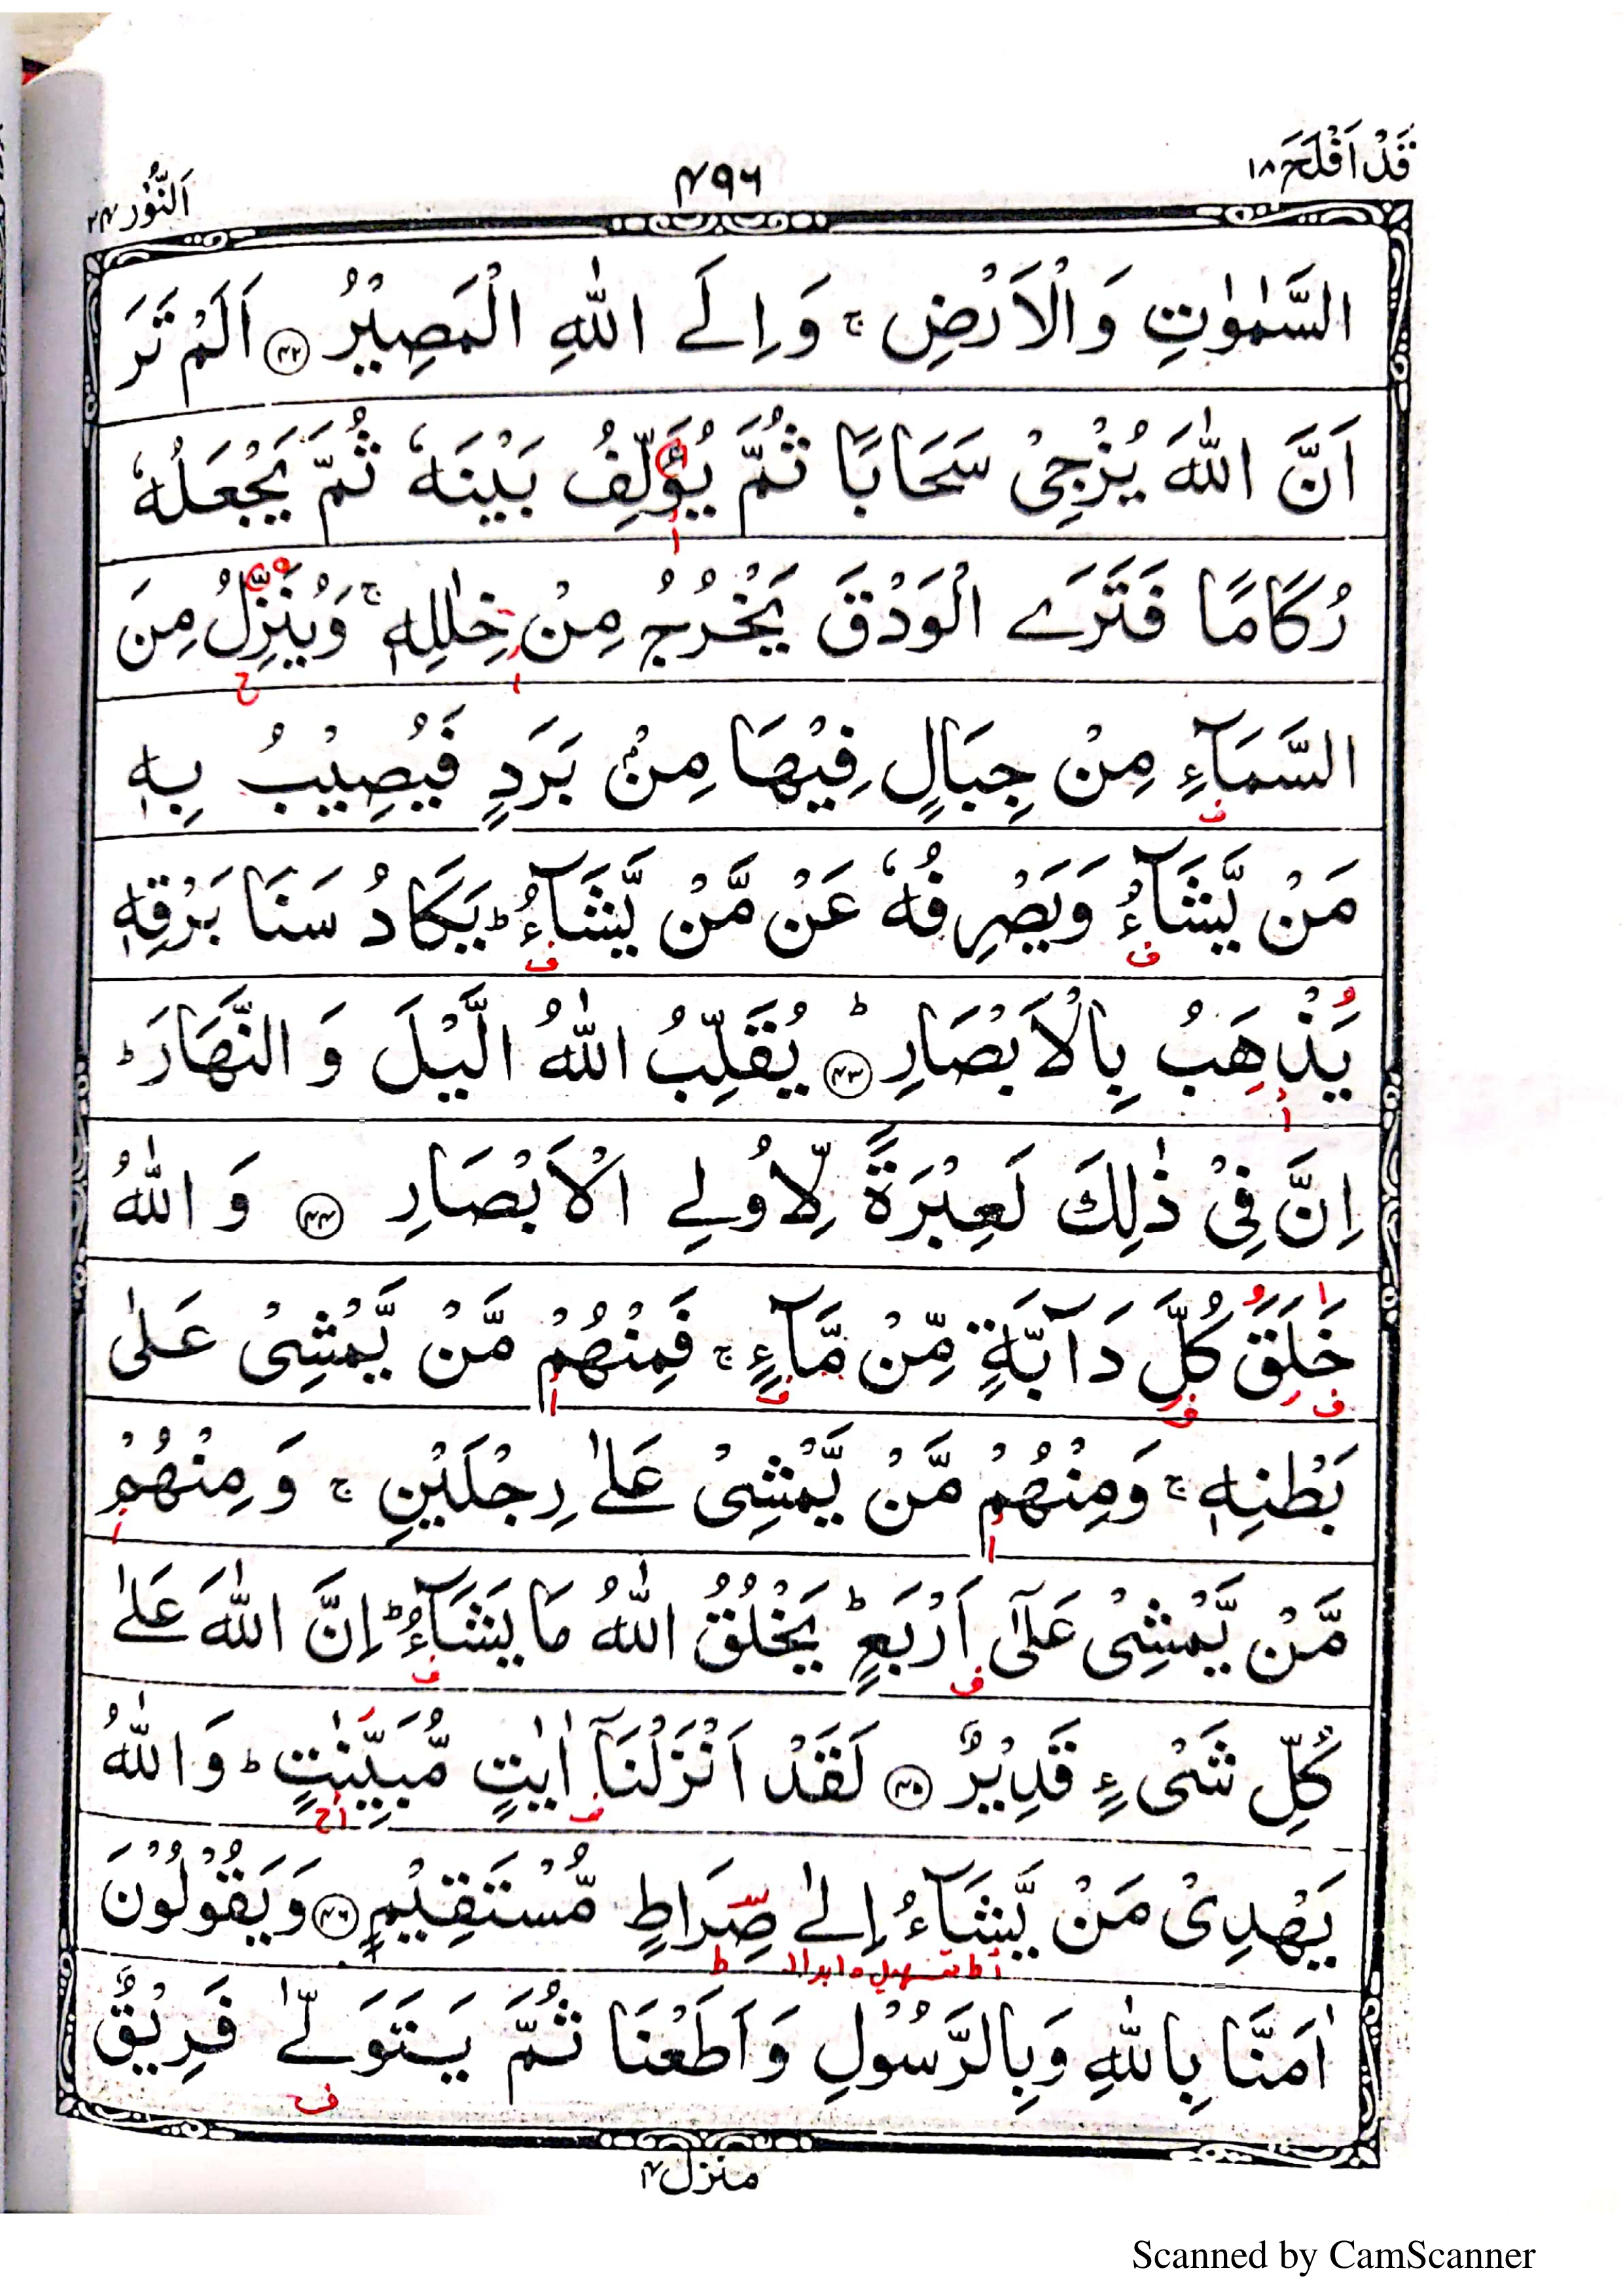 قَدْ اَفْلَحَ ١٨
٤٩٦
اَلنُّوْر ٢٤
السَّمٰوٰتِ وَالْاَرْضِ ۚ وَاِلَى اللّٰهِ الْمَصِيْرُ ﴿٤٢﴾ اَلَمْ تَرَ
اَنَّ اللّٰهَ يُزْجِيْ سَحَابًا ثُمَّ يُؤَلِّفُ بَيْنَهٗ ثُمَّ يَجْعَلُهٗ
رُكَامًا فَتَرَى الْوَدْقَ يَخْرُجُ مِنْ خِلٰلِهٖ ۚ وَيُنَزِّلُ مِنَ
السَّمَآءِ مِنْ جِبَالٍ فِيْهَا مِنْۢ بَرَدٍ فَيُصِيْبُ بِهٖ
مَنْ يَّشَآءُ وَيَصْرِفُهٗ عَنْ مَّنْ يَّشَآءُ ؕ يَكَادُ سَنَا بَرْقِهٖ
يَذْهَبُ بِالْاَبْصَارِ ؕ ﴿٤٣﴾ يُقَلِّبُ اللّٰهُ الَّيْلَ وَ النَّهَارَ ؕ
اِنَّ فِيْ ذٰلِكَ لَعِبْرَةً لِّاُولِي الْاَبْصَارِ ﴿٤٤﴾ وَ اللّٰهُ
خَلَقَ كُلَّ دَآبَّةٍ مِّنْ مَّآءٍ ۚ فَمِنْهُمْ مَّنْ يَّمْشِيْ عَلٰى
بَطْنِهٖ ۚ وَمِنْهُمْ مَّنْ يَّمْشِيْ عَلٰى رِجْلَيْنِ ۚ وَ مِنْهُمْ
مَّنْ يَّمْشِيْ عَلٰٓى اَرْبَعٍ ؕ يَخْلُقُ اللّٰهُ مَا يَشَآءُ ؕ اِنَّ اللّٰهَ عَلٰى
كُلِّ شَيْءٍ قَدِيْرٌ ﴿٤٥﴾ لَقَدْ اَنْزَلْنَآ اٰيٰتٍ مُّبَيِّنٰتٍ ؕ وَ اللّٰهُ
يَهْدِيْ مَنْ يَّشَآءُ اِلٰى صِرَاطٍ مُّسْتَقِيْمٍ ﴿٤٦﴾ وَيَقُوْلُوْنَ
اٰمَنَّا بِاللّٰهِ وَبِالرَّسُوْلِ وَاَطَعْنَا ثُمَّ يَتَوَلّٰى فَرِيْقٌ
منزل ٤
Scanned by CamScanner